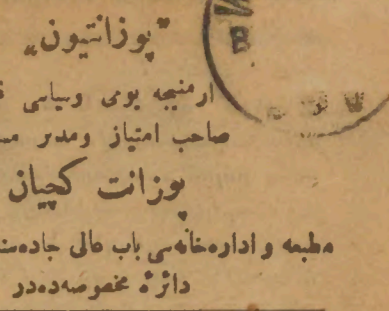 „پوزانتیون“
ارمنیجه یومی وسیاسی
صاحب امتیاز ومدیر
پوزانت کچیان
مطبعه و اداره‌خانه‌سی باب عالی جاده‌سند
دائرهٔ مخصوصه‌ده‌در
B